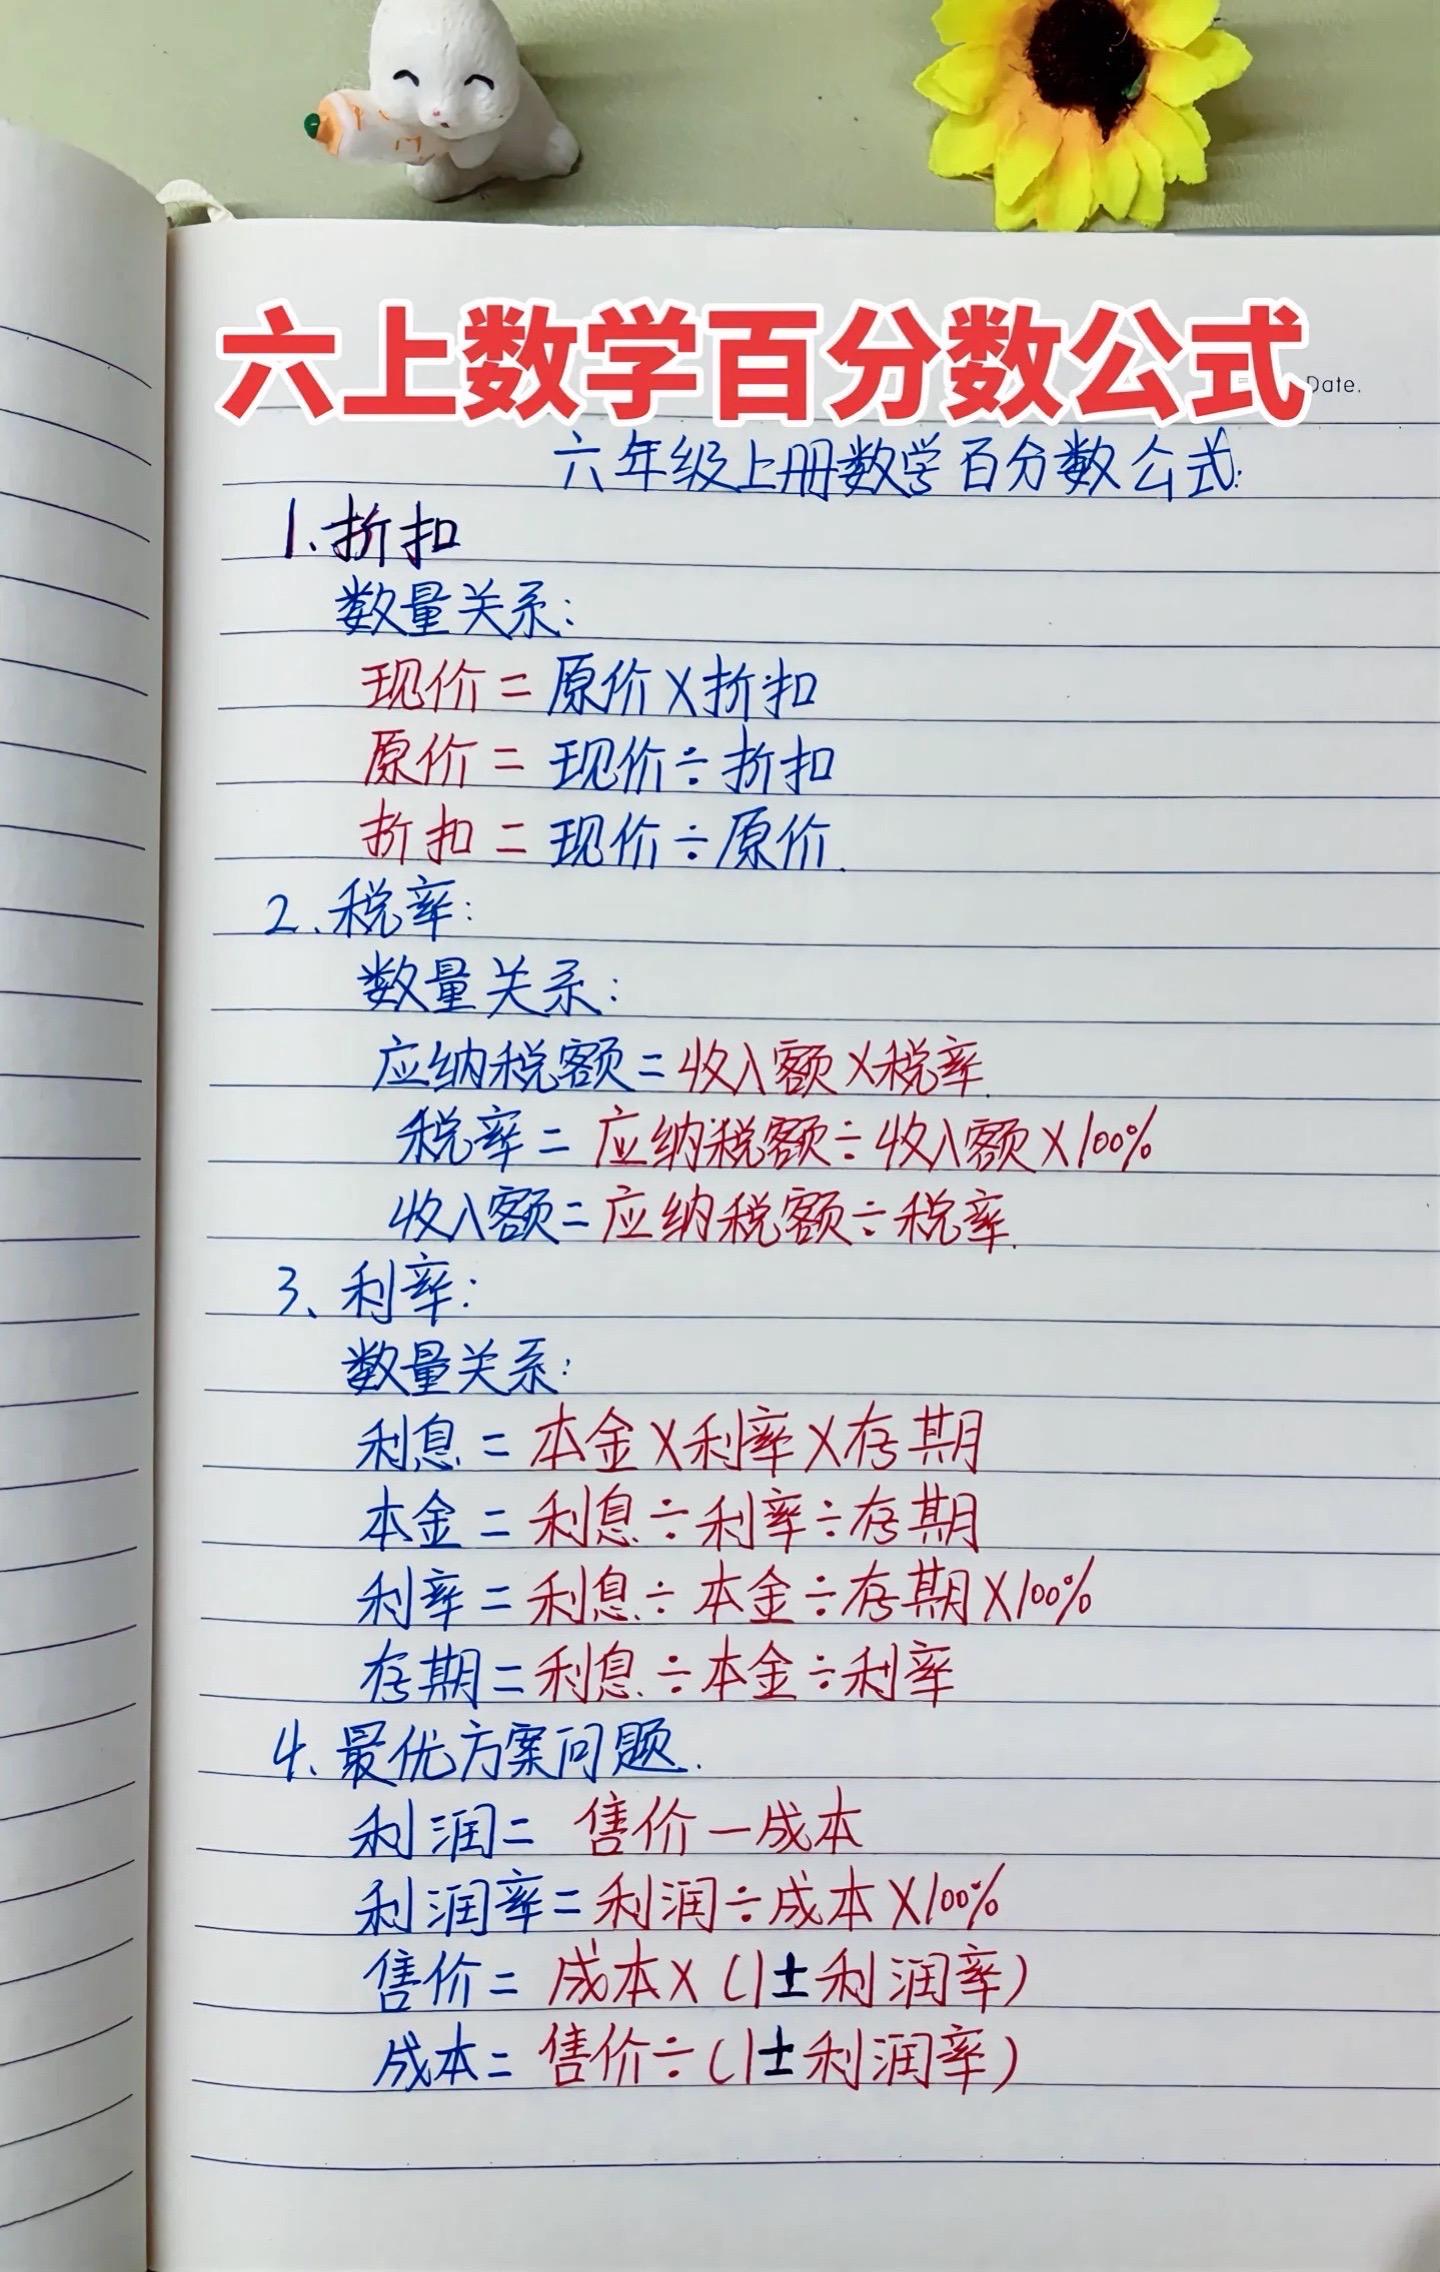 六上数学百分数公式
Date.
六年级上册数学百分数公式:
1、折扣
数量关系:
现价=原价×折扣
原价=现价÷折扣
折扣=现价÷原价.
2、税率:
数量关系:
应纳税额=收入额×税率.
税率=应纳税额÷收入额×100%
收入额=应纳税额÷税率.
3、利率:
数量关系:
利息=本金×利率×存期
本金=利息÷利率÷存期
利率=利息÷本金÷存期×100%
存期=利息÷本金÷利率
4、最优方案问题.
利润=售价-成本
利润率=利润÷成本×100%
售价=成本×(1±利润率)
成本=售价÷(1±利润率)